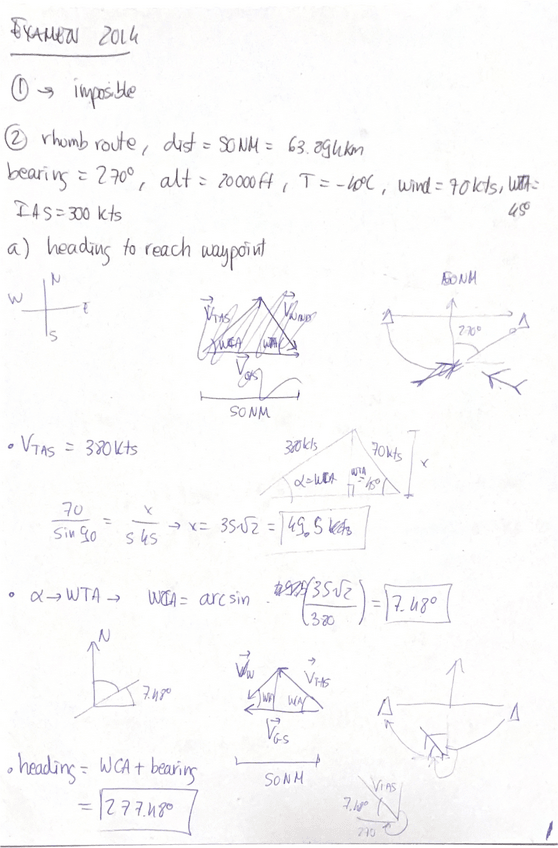 EXAMEN 2014
① → imposible
② rhumb route, dist = 50NM = 63.894km
bearing = 270°, alt = 20000ft, T = -40°C, wind = 70kts, WTA =
45°
IAS = 300 kts
a) heading to reach waypoint
N
W E
S
V TAS V WIND
WCA WTA
V GS
50NM
50NM
270°
• V TAS = 380kts
380kts 70kts x
α=WCA WTA = 45°
70/sin 90 = x/s 45 → x = 35√2 = 49.5 kts
• α → WTA → WCA = arcsin (35√2/380) = 7.48°
N
7.48°
V W V TAS
WTA WCA
V GS
50NM
• heading = WCA + bearing
= 277.48°
V TAS
7.48°
270
1